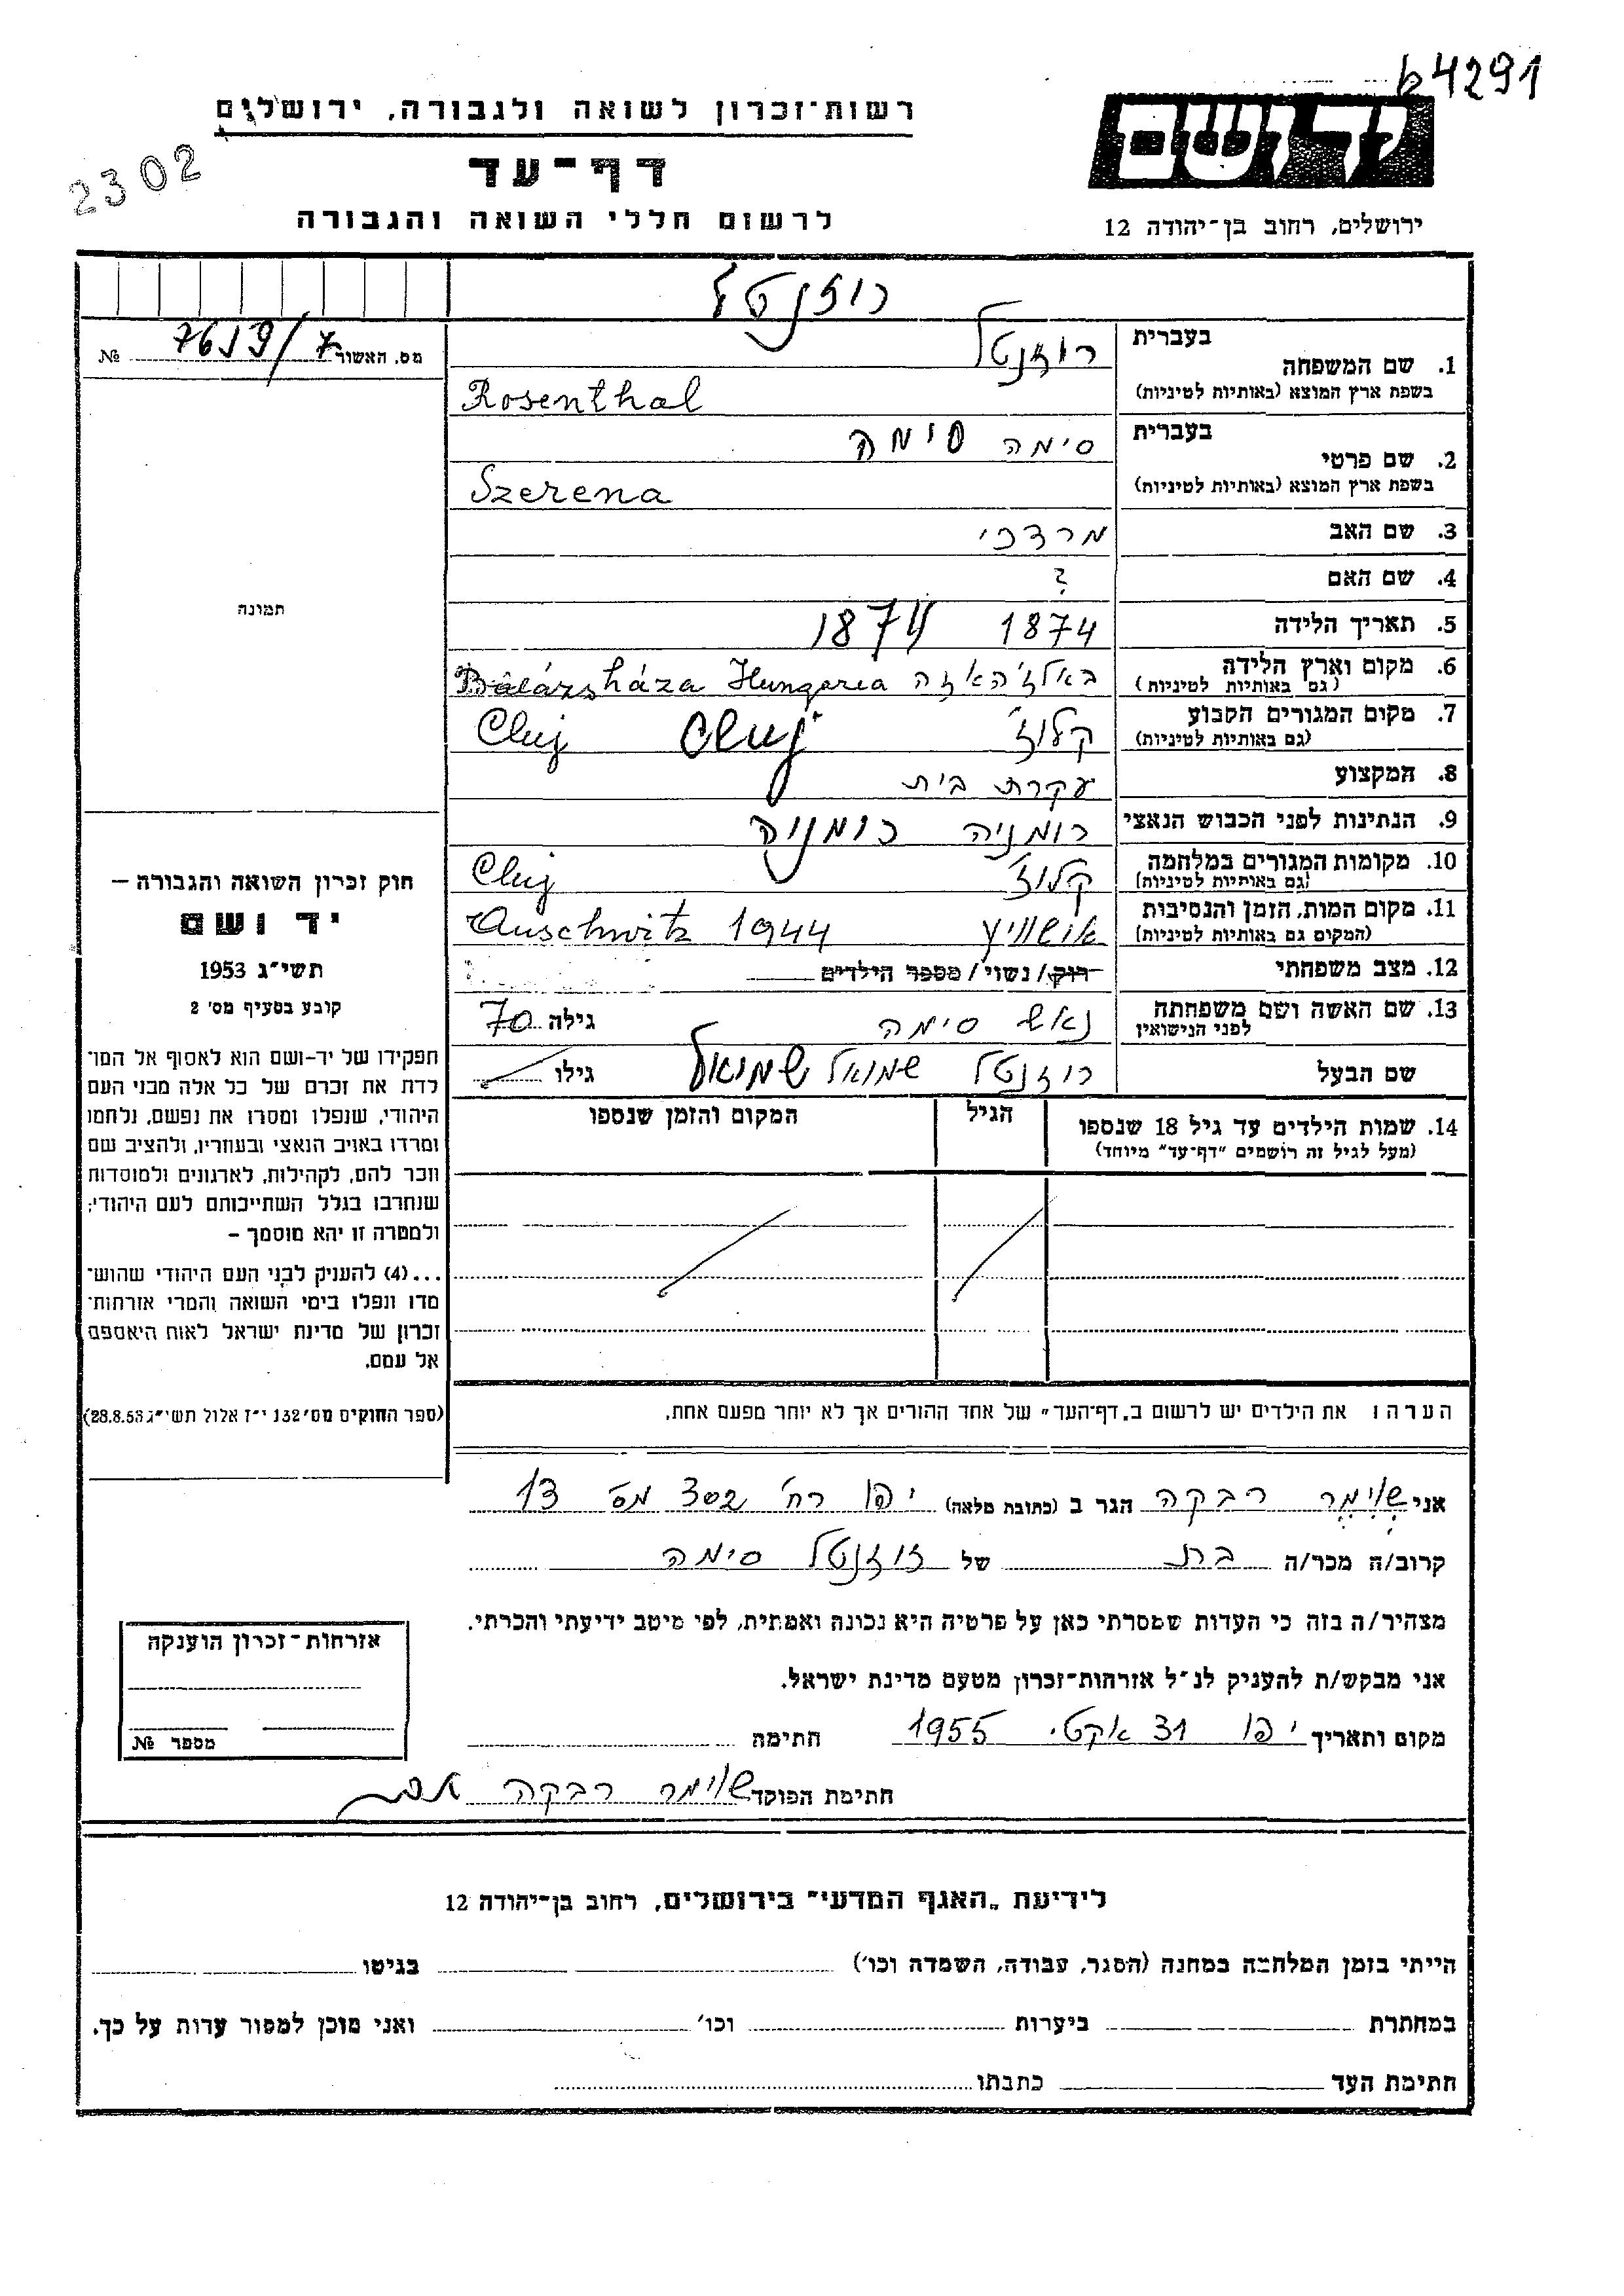 64291
רשות־זכרון לשואה ולגבורה, ירושלים
2302
יד ושם
דף־עד
לרשום חללי השואה והגבורה
ירושלים, רחוב בן־יהודה 12
רוזנטל
№ 7619/7 מס. האשור
1. שם המשפחה
בעברית רוזנטל
בשפת ארץ המוצא (באותיות לטיניות) Rosenthal
2. שם פרטי
בעברית סימה סימה
בשפת ארץ המוצא (באותיות לטיניות) Szerena
3. שם האב מרדכי
4. שם האם ?
5. תאריך הלידה 1874 1874
6. מקום וארץ הלידה באלז'האזה Balázsháza Hungaria
(גם באותיות לטיניות)
7. מקום המגורים הקבוע קלוז' Cluj Cluj
(גם באותיות לטיניות)
8. המקצוע עקרת בית
9. הנתינות לפני הכבוש הנאצי רומניה רומניה
10. מקומות המגורים במלחמה קלוז' Cluj
(גם באותיות לטיניות)
11. מקום המות, הזמן והנסיבות אושוויץ Auschwitz 1944
(המקום גם באותיות לטיניות)
12. מצב משפחתי רווק/ נשוי/ מספר הילדים
13. שם האשה ושם משפחתה נאש סימה גילה 70
לפני הנישואין
שם הבעל רוזנטל שמואל שמואל גילו
14. שמות הילדים עד גיל 18 שנספו הגיל המקום והזמן שנספו
(מעל לגיל זה רושמים "דף־עד" מיוחד)
תמונה
חוק זכרון השואה והגבורה –
יד ושם
תשי"ג 1953
קובע בסעיף מס' 2
תפקידו של יד-ושם הוא לאסוף אל המו־
לדת את זכרם של כל אלה מבני העם
היהודי, שנפלו ומסרו את נפשם, נלחמו
ומרדו באויב הנאצי ובעוזריו, ולהציב שם
וזכר להם, לקהילות, לארגונים ולמוסדות
שנחרבו בגלל השתייכותם לעם היהודי;
ולמטרה זו יהא מוסמך –
...(4) להעניק לבני העם היהודי שהוש־
מדו ונפלו בימי השואה והמרי אזרחות־
זכרון של מדינת ישראל לאות היאספם
אל עמם.
(ספר החוקים מס' 132 י"ז אלול תשי"ג 28.8.53)
הערה: את הילדים יש לרשום ב„דף־העד" של אחד ההורים אך לא יותר מפעם אחת.
אני שווימר רבקה הגר ב (כתובת מלאה) יפו רח' 302 מס 13
קרוב/ה מכר/ה בת של רוזנטל סימה
מצהיר/ה בזה כי העדות שמסרתי כאן על פרטיה היא נכונה ואמתית, לפי מיטב ידיעתי והכרתי.
אני מבקש/ת להעניק לנ"ל אזרחות־זכרון מטעם מדינת ישראל.
מקום ותאריך יפו 31 אקט'. 1955 חתימה
חתימת הפוקד שווימר רבקה
אזרחות־זכרון הוענקה
מספר №
לידיעת „האגף המדעי" בירושלים, רחוב בן־יהודה 12
הייתי בזמן המלחמה במחנה (הסגר, עבודה, השמדה וכו') בגיטו
במחתרת ביערות וכו' ואני מוכן למסור עדות על כך.
חתימת העד כתבתו